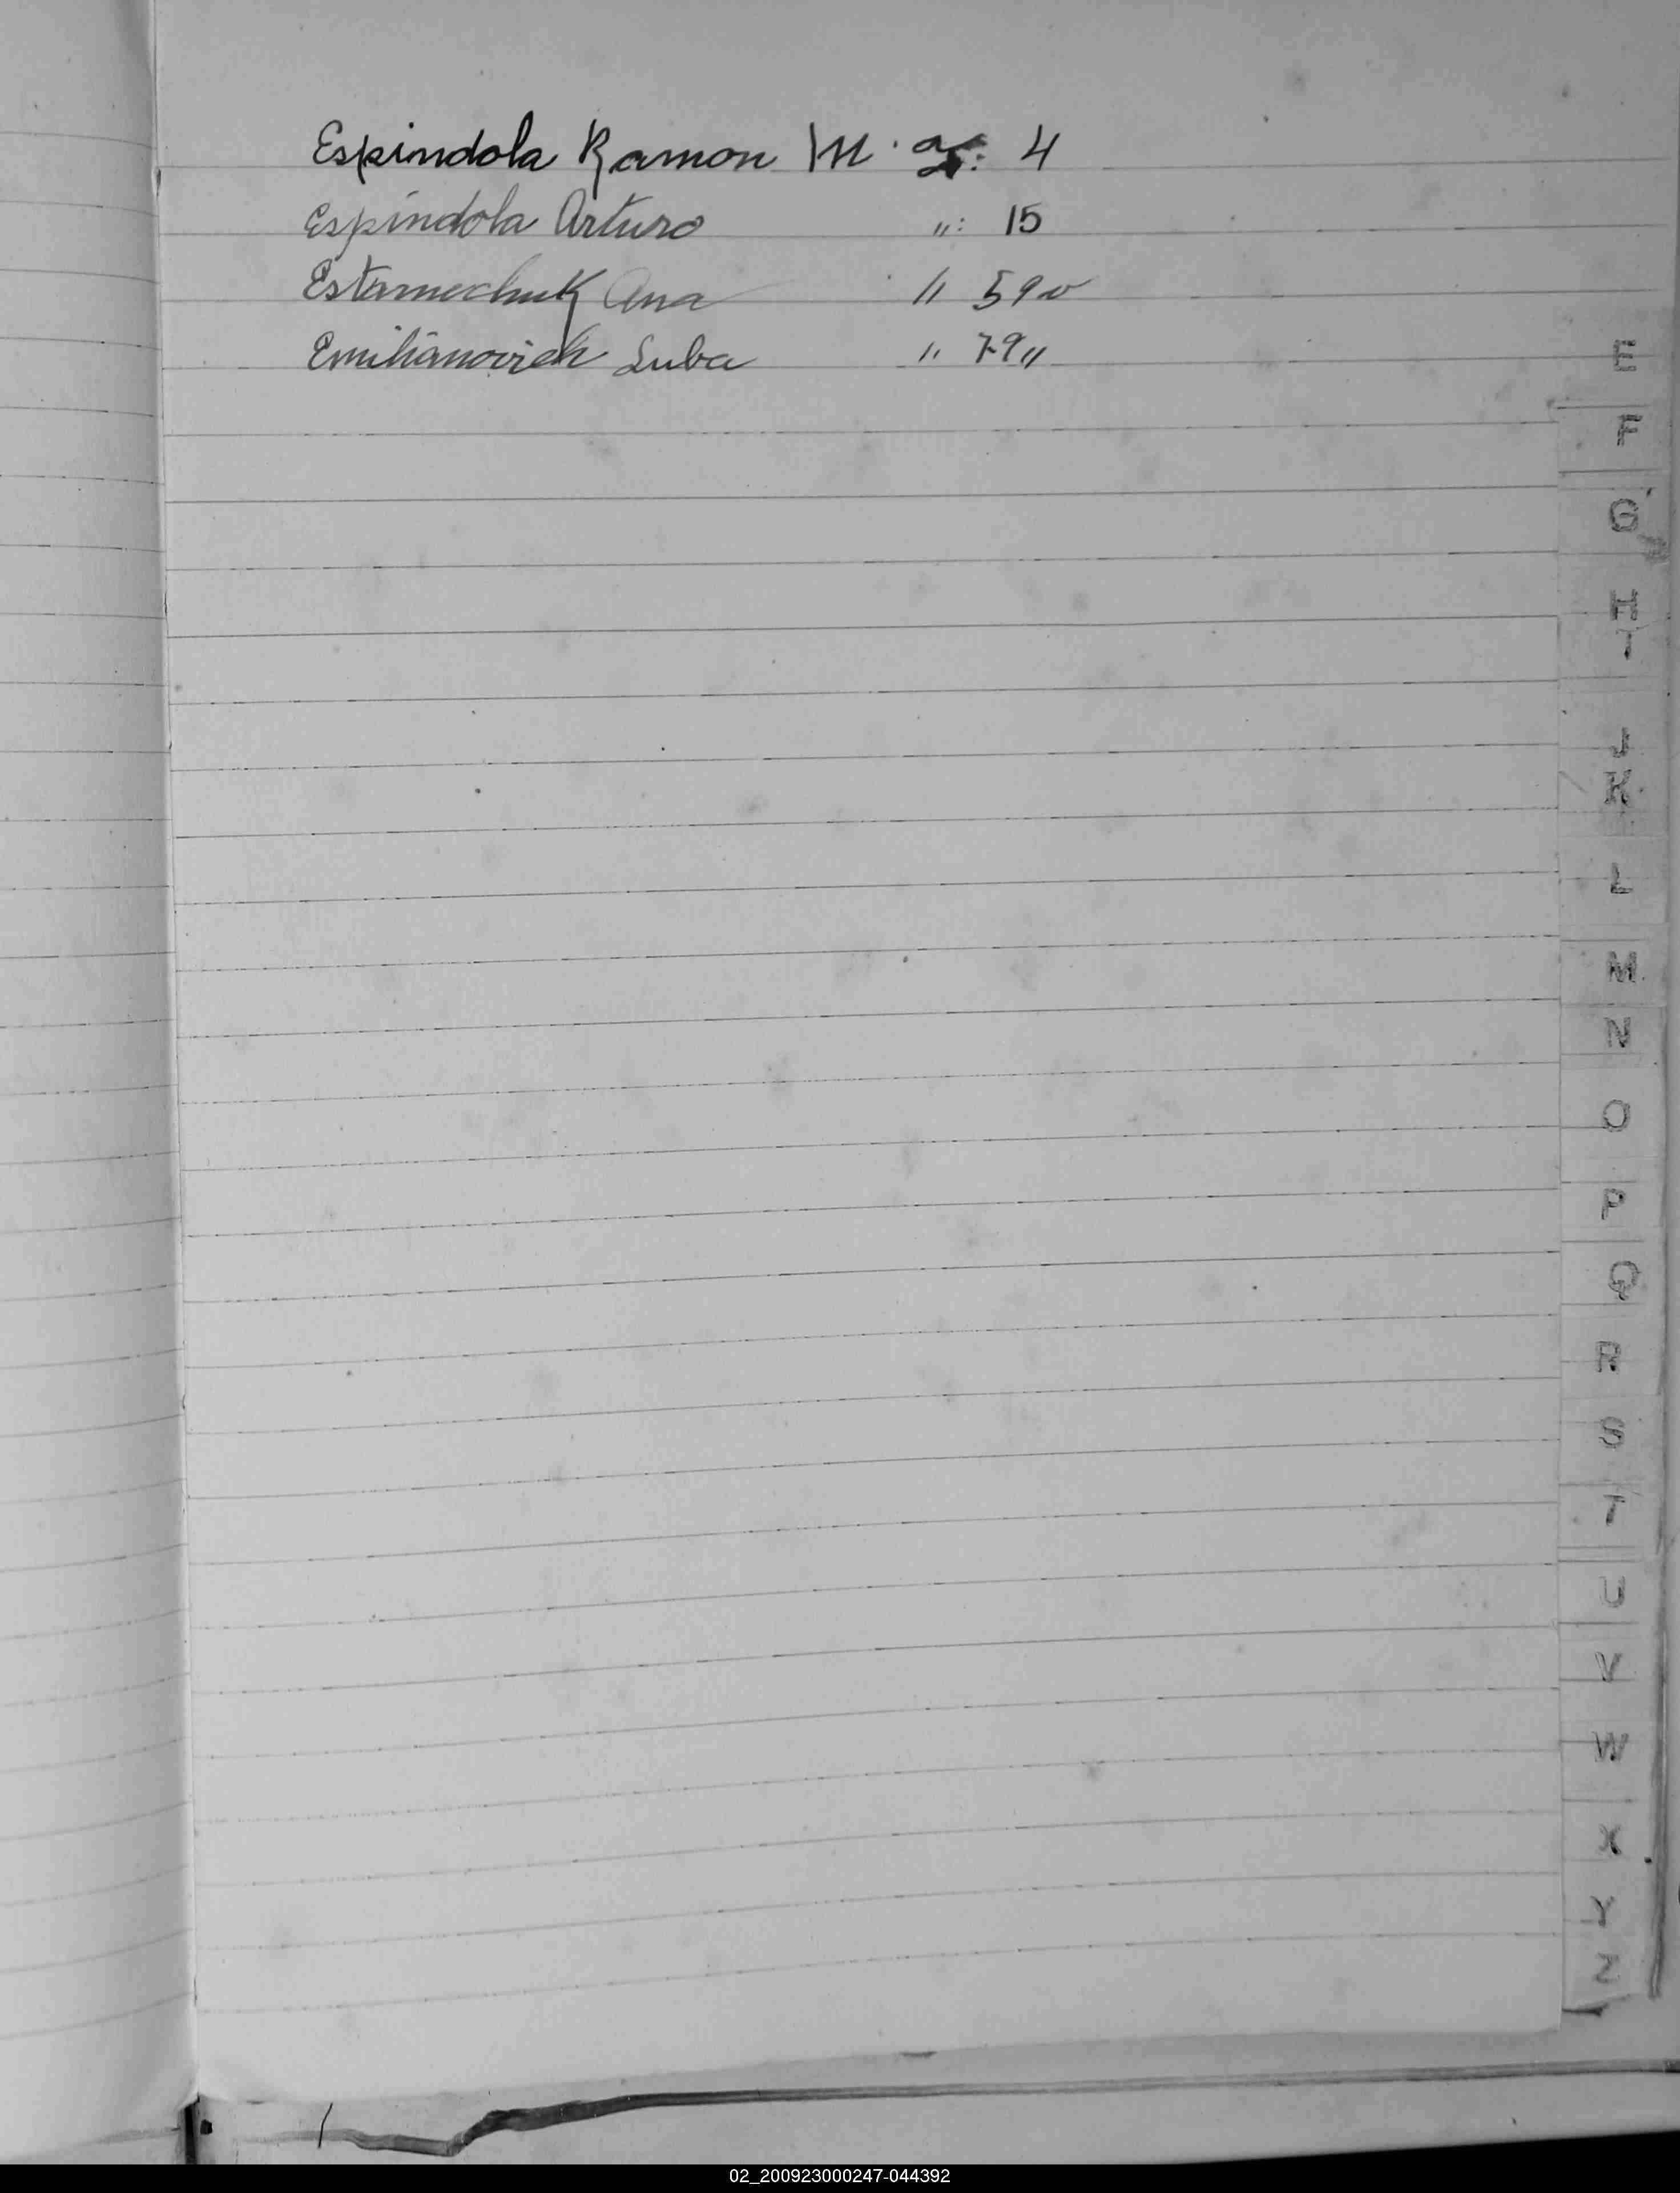 Espindola Ramon M. a F: 4
Espindola Arturo ": 15
Estarnechuk Ana " 59 v
Emilianovich Luba " 79 "
E
F
G
H
I
J
K
L
M
N
O
P
Q
R
S
T
U
V
W
X
Y
Z
02_200923000247-044392